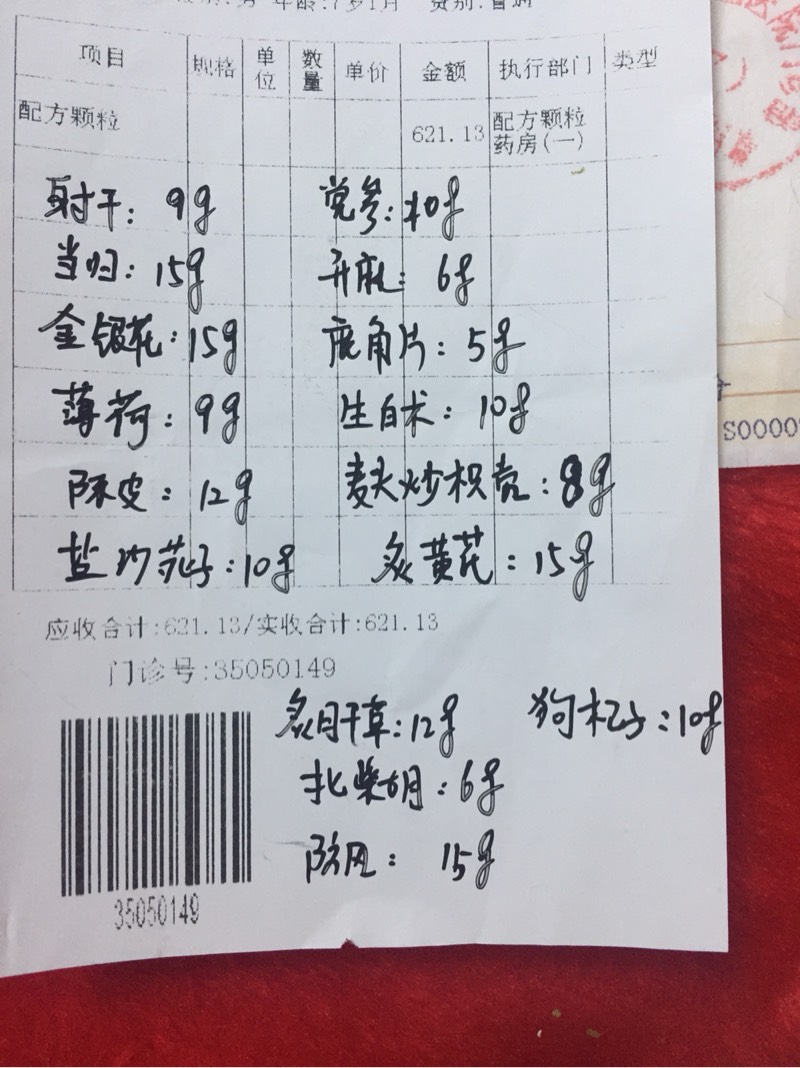 年龄:7岁1月 费别:普通
项目 规格 单位 数量 单价 金额 执行部门 类型
配方颗粒 621.13 配方颗粒药房(一)
射干: 9g 党参:10g
当归: 15g 升麻: 6g
金银花: 15g 鹿角片: 5g
薄荷: 9g 生白术: 10g
陈皮: 12g 麸炒枳壳: 8g
盐沙苑子: 10g 炙黄芪: 15g
应收合计:621.13/实收合计:621.13
门诊号:35050149
炙甘草: 12g 狗杞子: 10g
北柴胡: 6g
防风: 15g
35050149
S0000